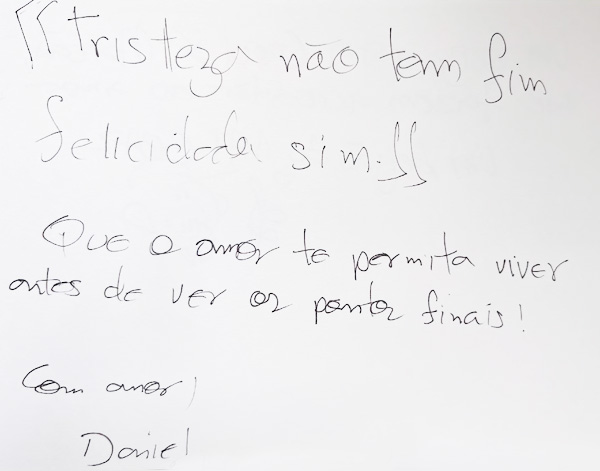 "Tristeza não tem fim
felicidade sim."
Que o amor te permita viver
antes de ver os pontos finais!
Com amor,
Daniel